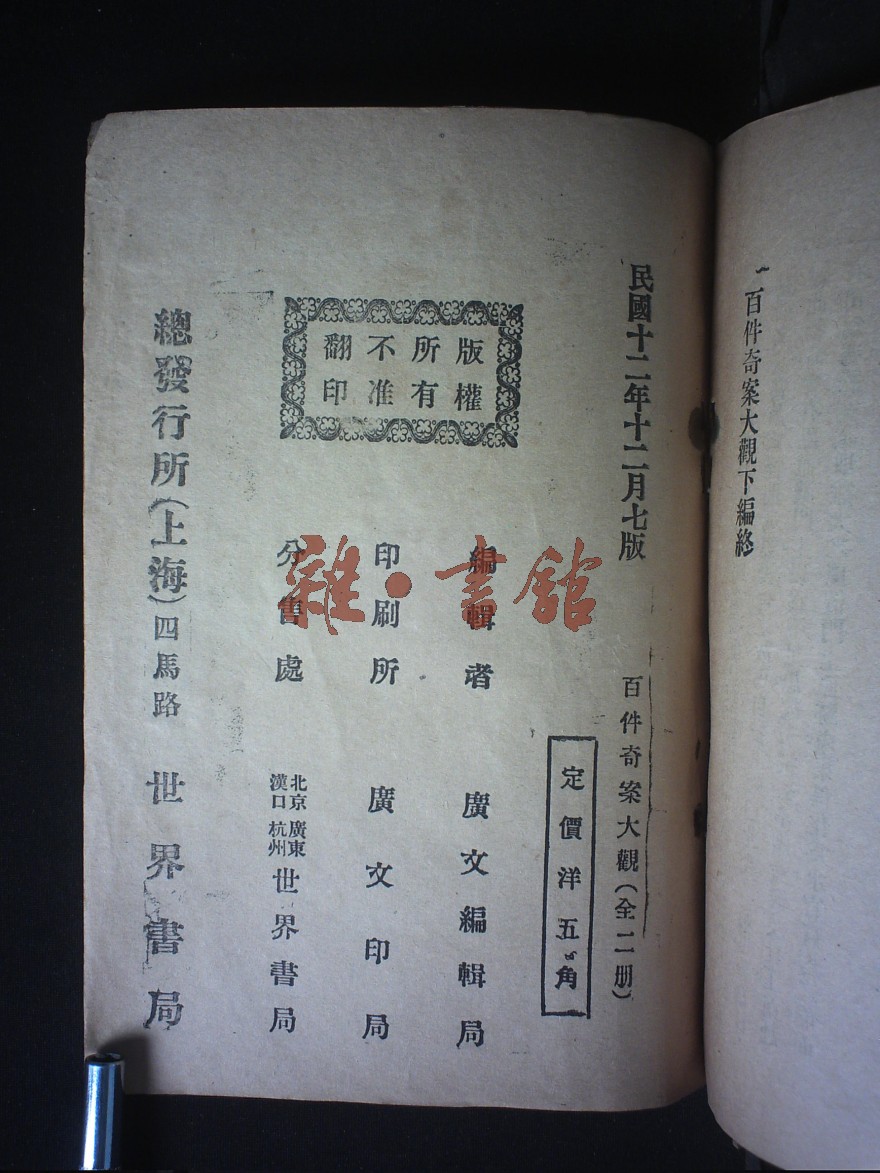 一百件奇案大觀下編終
民國十二年十二月七版
百件奇案大觀(全二册)
定價洋五角
版權
所有
不准
翻印
編輯者 廣文編輯局
印刷所 廣文印局
分售處 北京 廣東 漢口 杭州 世界書局
總發行所(上海)四馬路 世界書局
雜·書館